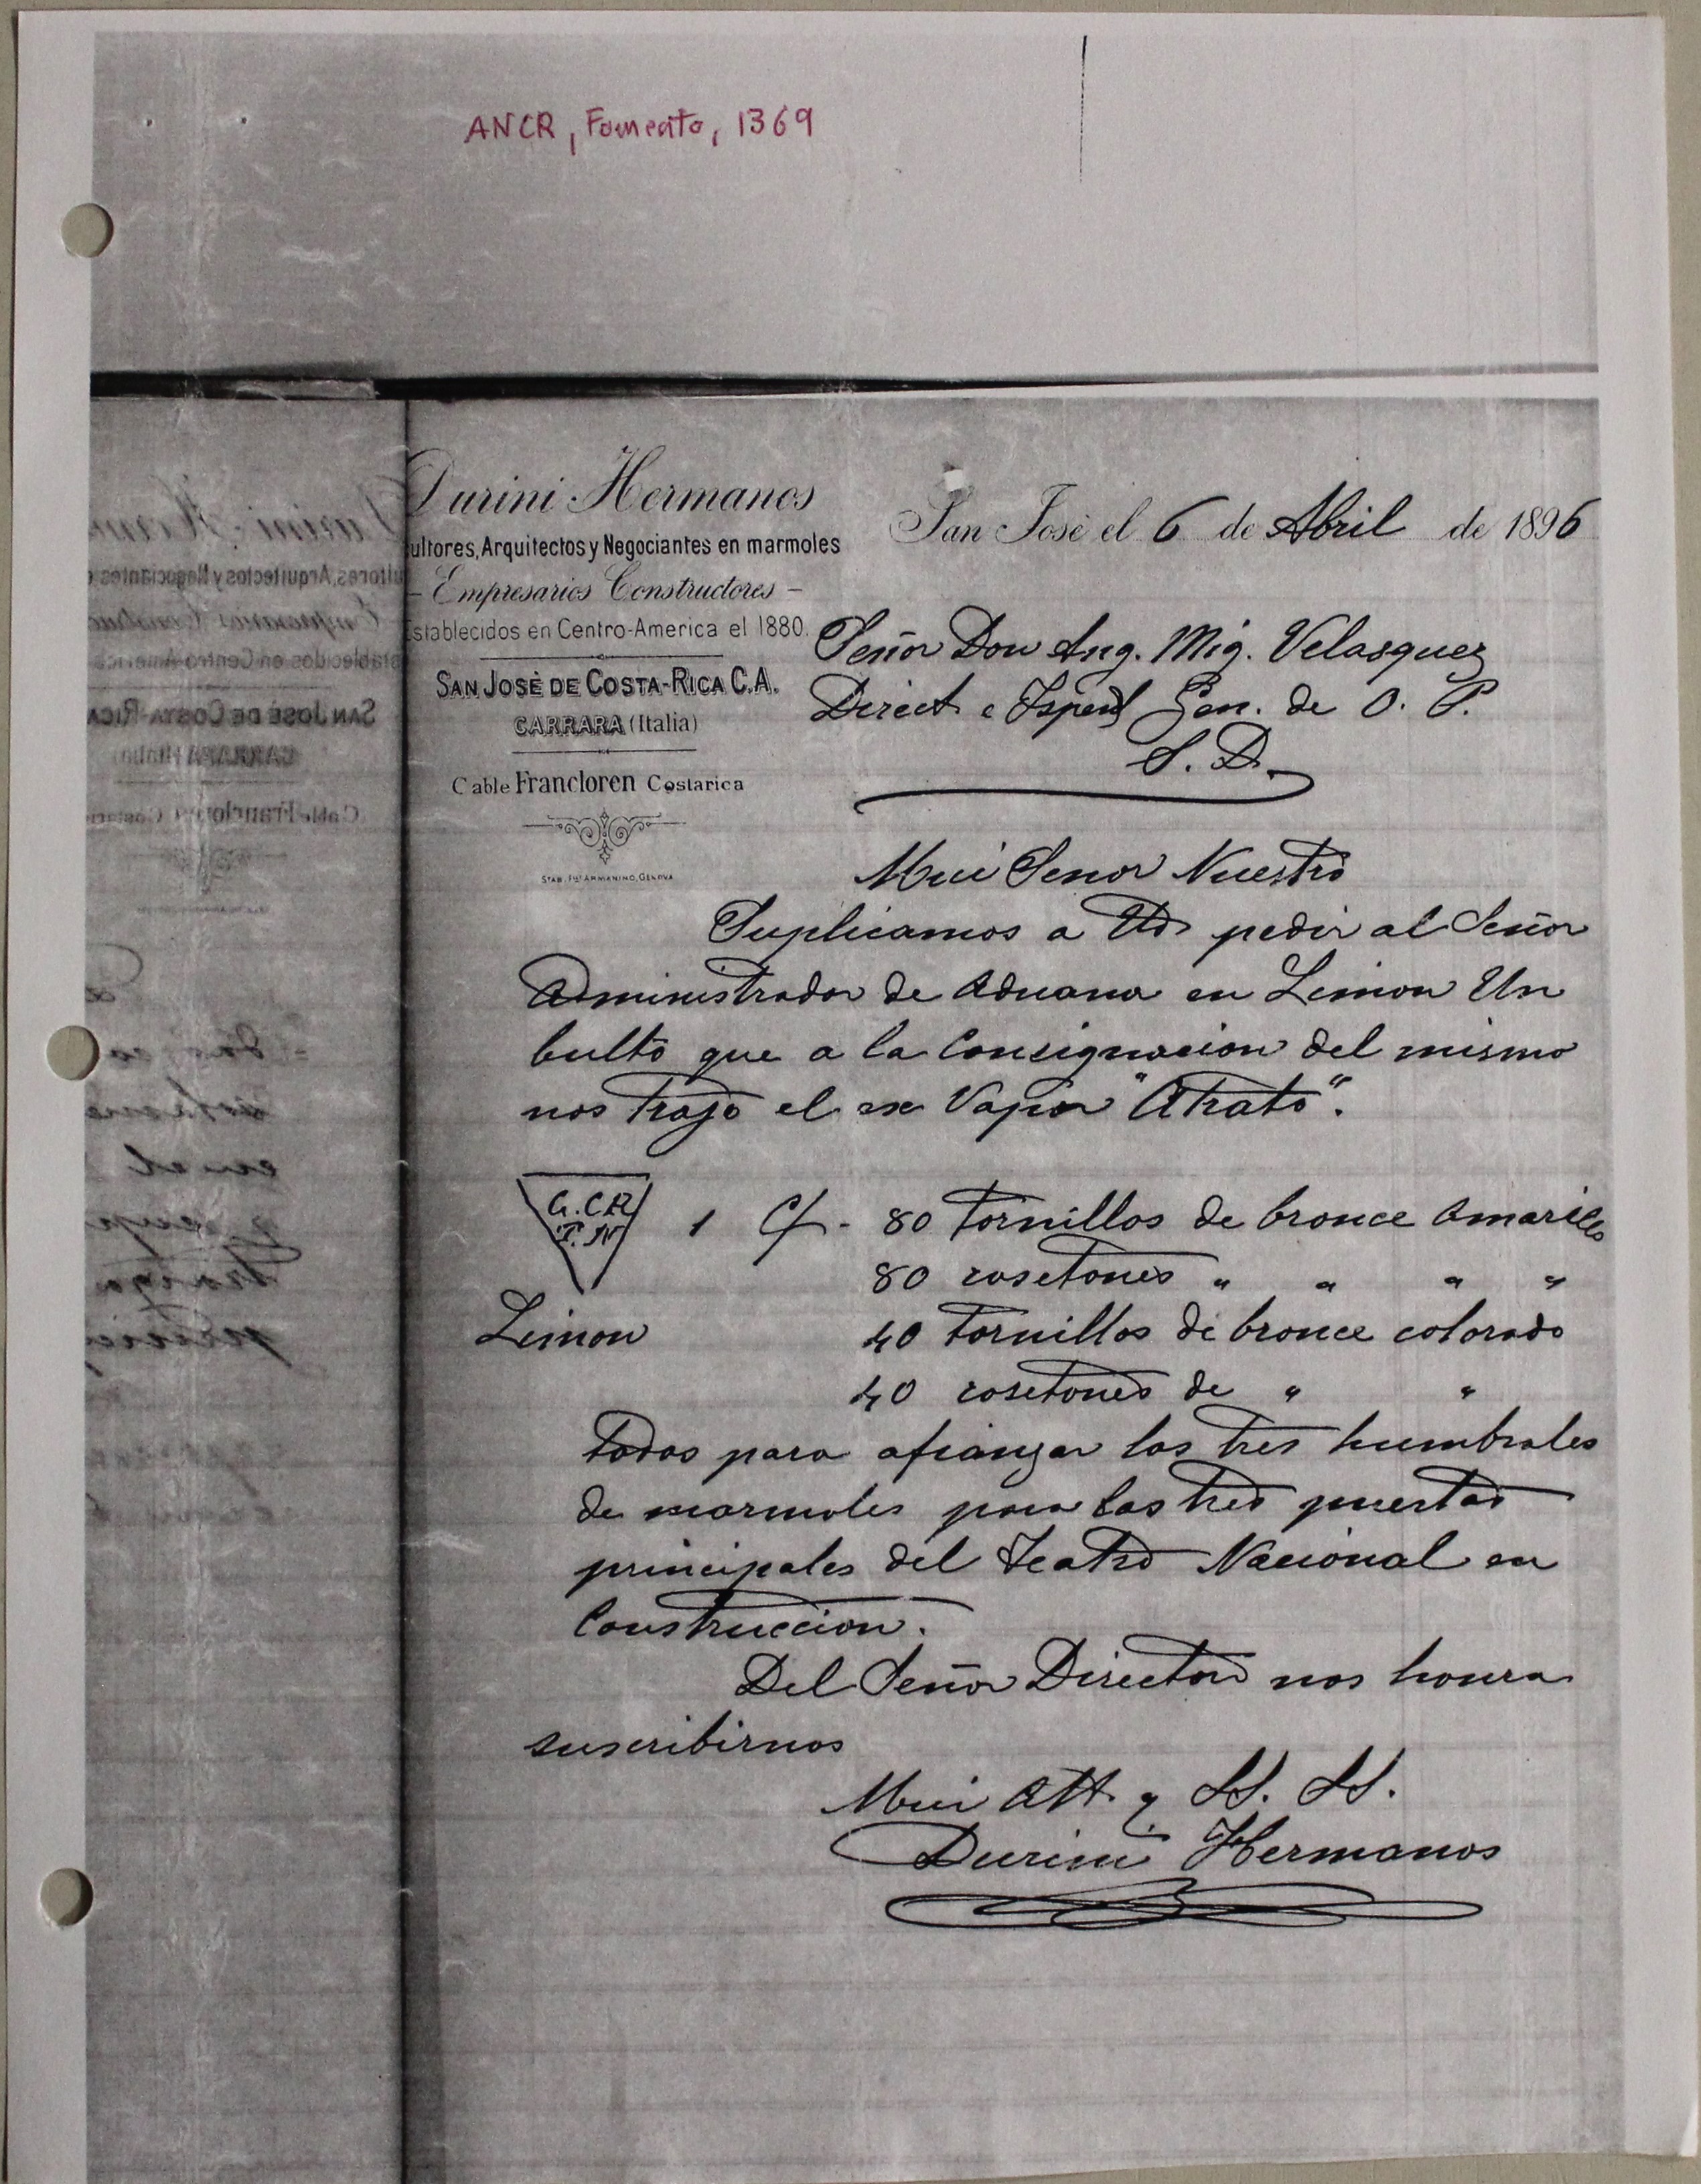 ANCR, Fomento, 1369
Durini Hermanos
ultores, Arquitectos y Negociantes en marmoles
- Empresarios Constructores -
Establecidos en Centro-America el 1880.
SAN JOSÈ DE COSTA-RICA C.A.
CARRARA (Italia)
Cable Francloren Costarica
STAB. F.lli ARMANINO, GENOVA
San Josè el 6 de Abril de 1896
Señor Don Ang. Mig. Velasquez
Direct. e Gen. de O. P.
S. D.
Mui Señor Nuestro
Suplicamos a Ud. pedir al Señor
Administrador de Aduana en Limon Un
bulto que a la Consignacion del mismo
nos trajo el ex Vapor "Atrato".
G. C R
T. N
1 C/ - 80 Tornillos de bronce Amarillo
80 rosetones " " " "
Limon
40 Tornillos de bronce colorado
40 rosetones de " "
Todos para afianzar los tres humbrales
de marmoles para las tres puertas
principales del Teatro Nacional en
Construccion.
Del Señor Director nos honra
suscribirnos
Mui Att. y SS. SS.
Durini Hermanos